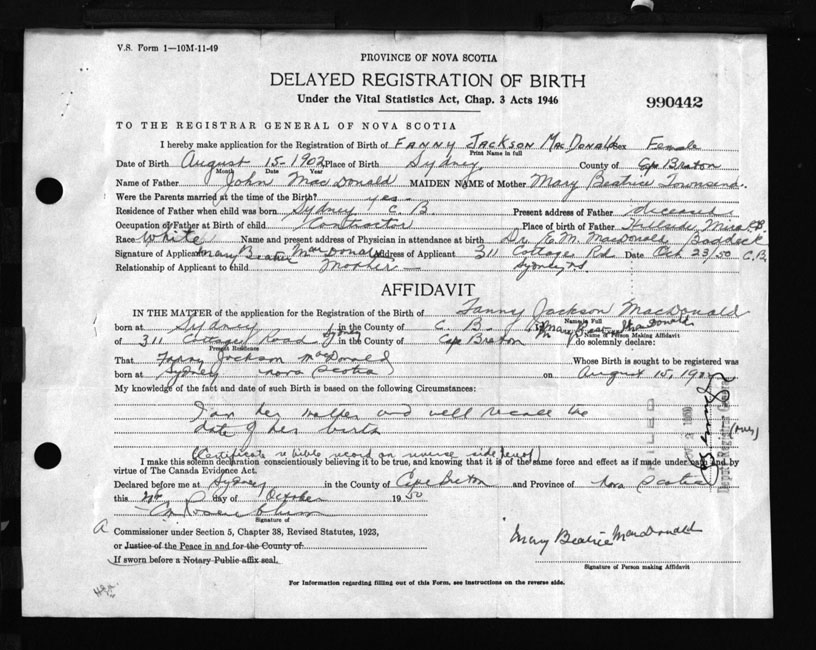 V.S. Form 1—10M-11-49
PROVINCE OF NOVA SCOTIA
DELAYED REGISTRATION OF BIRTH
Under the Vital Statistics Act, Chap. 3 Acts 1946
990442
TO THE REGISTRAR GENERAL OF NOVA SCOTIA
I hereby make application for the Registration of Birth of FANNY JACKSON MACDONALD Sex Female
Print Name in full
Date of Birth August 15-1902 Place of Birth Sydney County of Cape Braton
Month Date Year
Name of Father John MacDonald MAIDEN NAME of Mother Mary Beatrice Townsend.
Were the Parents married at the time of the Birth? yes
Residence of Father when child was born Sydney C.B. Present address of Father diceased
Occupation of Father at Birth of child Contractor Place of birth of Father Hillside Mira C.B.
Race White Name and present address of Physician in attendance at birth Dr. E. M. MacDonald Baddeck C.B.
Signature of Applicant Mary Beatrice MacDonald Address of Applicant 311 Cottage Rd Sydney NS Date Oct 23/50
Relationship of Applicant to child Mother
AFFIDAVIT
IN THE MATTER of the application for the Registration of the Birth of Fanny Jackson MacDonald
Name in Full
born at Sydney in the County of C. B. Mary Beatrice MacDonald
Name of Person Making Affidavit
of 311 Cottage Road Sydney in the County of Cape Braton do solemnly declare:
Present Residence
That Fanny Jackson MacDonald Whose Birth is sought to be registered was
born at Sydney Nova Scotia on August 15, 1902
My knowledge of the fact and date of such Birth is based on the following Circumstances:
I am her mother and well recall the
date of her birth
(Certificate re bible record on reverse side hereof)
(over)
I make this solemn declaration conscientiously believing it to be true, and knowing that it is of the same force and effect as if made under oath and by
virtue of The Canada Evidence Act.
Declared before me at Sydney in the County of Cape Breton and Province of Nova Scotia
this day of October 1950
Signature of
A Commissioner under Section 5, Chapter 38, Revised Statutes, 1923,
or Justice of the Peace in and for the County of
If sworn before a Notary Public affix seal.
Mary Beatrice MacDonald
Signature of Person making Affidavit
For Information regarding filling out of this Form, see Instructions on the reverse side.
FILED